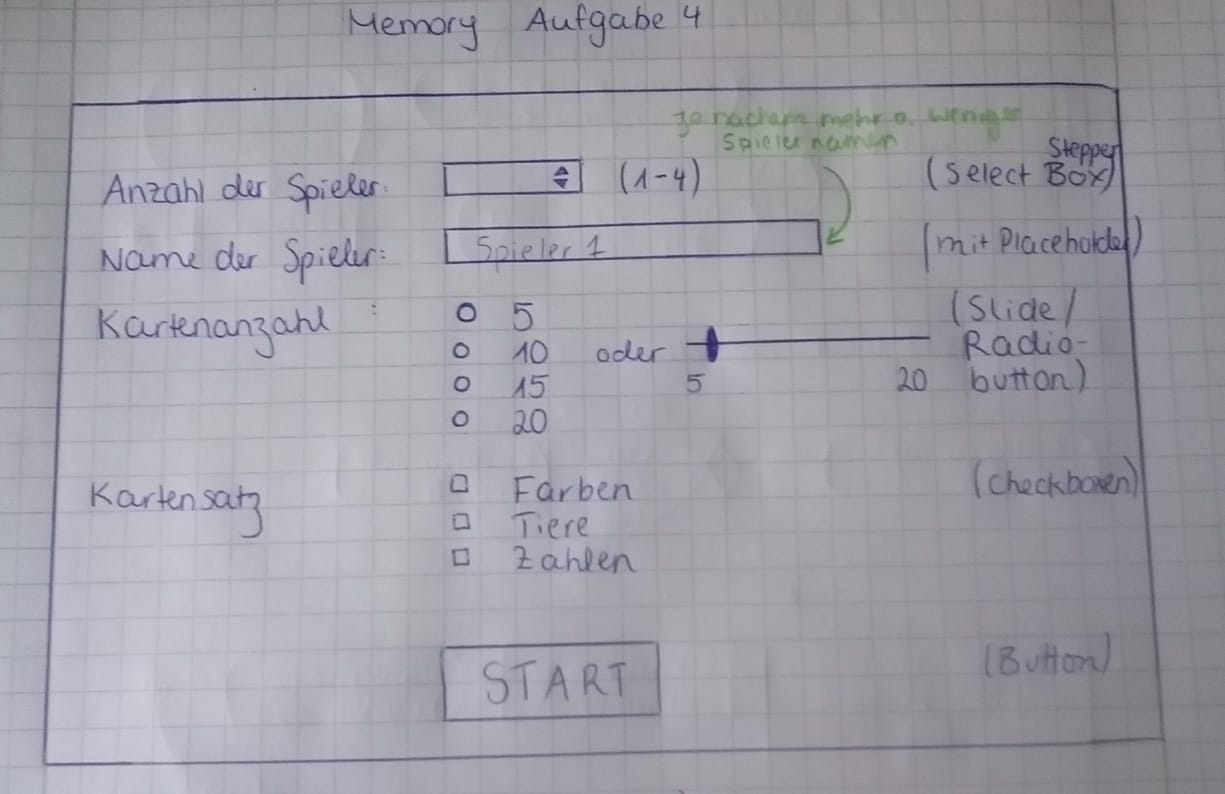 Memory Aufgabe 4
Je nachdem mehr o. weniger
Spielernamen
Anzahl der Spieler: (1-4) (Select Box) Stepper
Name der Spieler: Spieler 1 (mit Placeholder)
Kartenanzahl : 5 (Slide/
10 oder Radio-
15 5 20 button)
20
Kartensatz Farben (Checkboxen)
Tiere
Zahlen
START (Button)